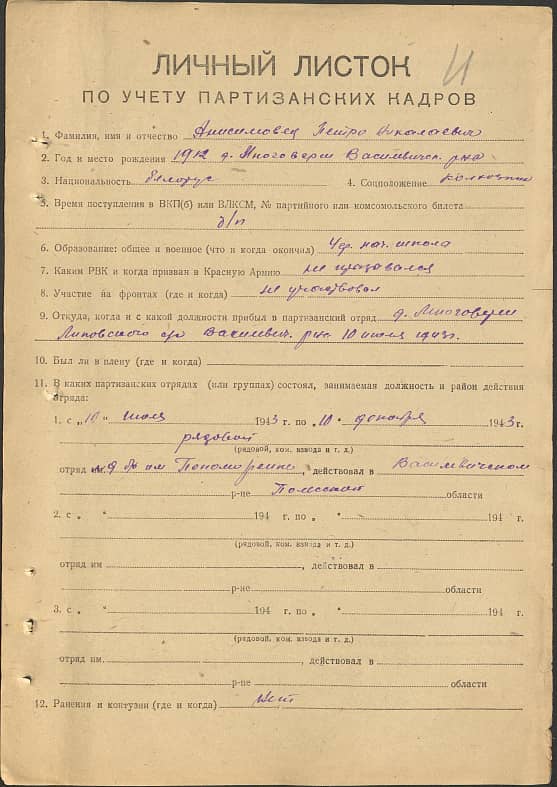 И
ЛИЧНЫЙ ЛИСТОК
ПО УЧЕТУ ПАРТИЗАНСКИХ КАДРОВ
1. Фамилия, имя и отчество Анисимовец Петро Николаевич
2. Год и место рождения 1912 д. Многоверш Василевичск. р-на
3. Национальность белорус 4. Соцположение колхозник
5. Время поступления в ВКП(б) или ВЛКСМ, № партийного или комсомольского билета
б/п
6. Образование: общее и военное (что и когда окончил) 4 гр. нач. школа
7. Каким РВК и когда призван в Красную Армию не призывался
8. Участие на фронтах (где и когда) не участвовал
9. Откуда, когда и с какой должности прибыл в партизанский отряд д. Многоверш
Липовского с/с Василевич. р-на 10 июля 1943 г.
10. Был ли в плену (где и когда)
11. В каких партизанских отрядах (или группах) состоял, занимаемая должность и район действия
отряда:
1. с „10" июля 1943 г. по „10" декабря 1943 г.
рядовой
(рядовой, ком. взвода и т. д.)
отряд им. Пономаренко, действовал в Василевичском
р-не Полесской области
2. с „ " 194 г. по „ " 194 г.
(рядовой, ком. взвода и т. д.)
отряд им , действовал в
р-не области
3. с „ " 194 г. по „ " 194 г.
(рядовой, ком. взвода и т. д.)
отряд им. , действовал в
р-не области
12. Ранения и контузии (где и когда) нет